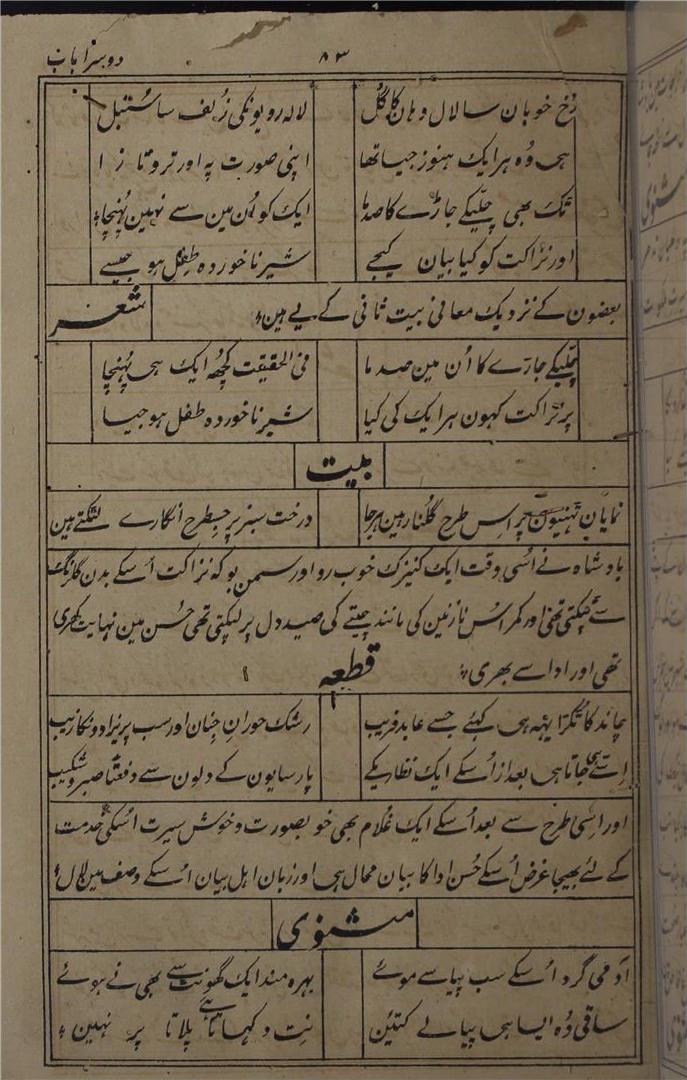 دوسرا باب ۸۳
رُخِ خوبان سا لال وہان کا گل لالہ رویونکی زُلف سا سُنبل
ہی وُہ ہر ایک ہنوز جیسا تھا اپنی صورت پہ اور ترو تازا
تک بھی چلّیکے جاڑے کا صدما ایک کو اُن مین سے نہین پُہنچا
اور نزاکت کو کیا بیان کیجے شیر ناخوردہ طِفل ہو جیسے
بعضون کے نزدیک معانی بیت ثانی کے یے ہین شعر
چلّیکے جاڑے کا اُن مین صدما فی الحقیقت کچھ ایک ہی پُہنچا
پر نزاکت کہون ہر ایک کی کیا شیر ناخوردہ طفل ہو جیسا
بیت
نمایان ٹہنیون پر اِس طرح گلنار ہین ہرجا درخت سبز پر جسطرح انگارے لٹکتے ہین
بادشاہ نے اُسی وقت ایک کنیزک خوب رو اور سمن بو کہ نزاکت اُسکے بدن گلرنگ
سے ٹپکتی تھی اور کمر اُس نازنین کی مانند چیتے کی صید دل پر لپکتی تھی حُسن مین نہایت نکھری
تھی اور ادا سے بھری
قطعہ
چاند کا ٹکڑا یہہ ہی کہئے جسے عابد فریب رشک حورانِ جنان اور سب پریزادونکا زیب
اِتے ہی جاتا ہی بعد از اُسکے ایک نظاریکے پارسایون کے دلون سے دفعتاً صبر و شکیب
اور اِسی طرح سے بعد اُسکے ایک غُلام بھی خوبصورت و خوش سیرت اُسکی خدمت
کے لئے بھیجا غرض اُسکے حُسن ادا کا بیان محال ہی اور زبان اہل بیان اُسکے وصف مین لال
مثنوی
آدمی گرد اُسکے سب پیاسے موئے بہرہ مند ایک گھونٹ سے بھی نے ہوئے
ساقی وُہ ایسا ہی پیالے کتئین نِت دکھاتا ہے پلاتا پر نہین